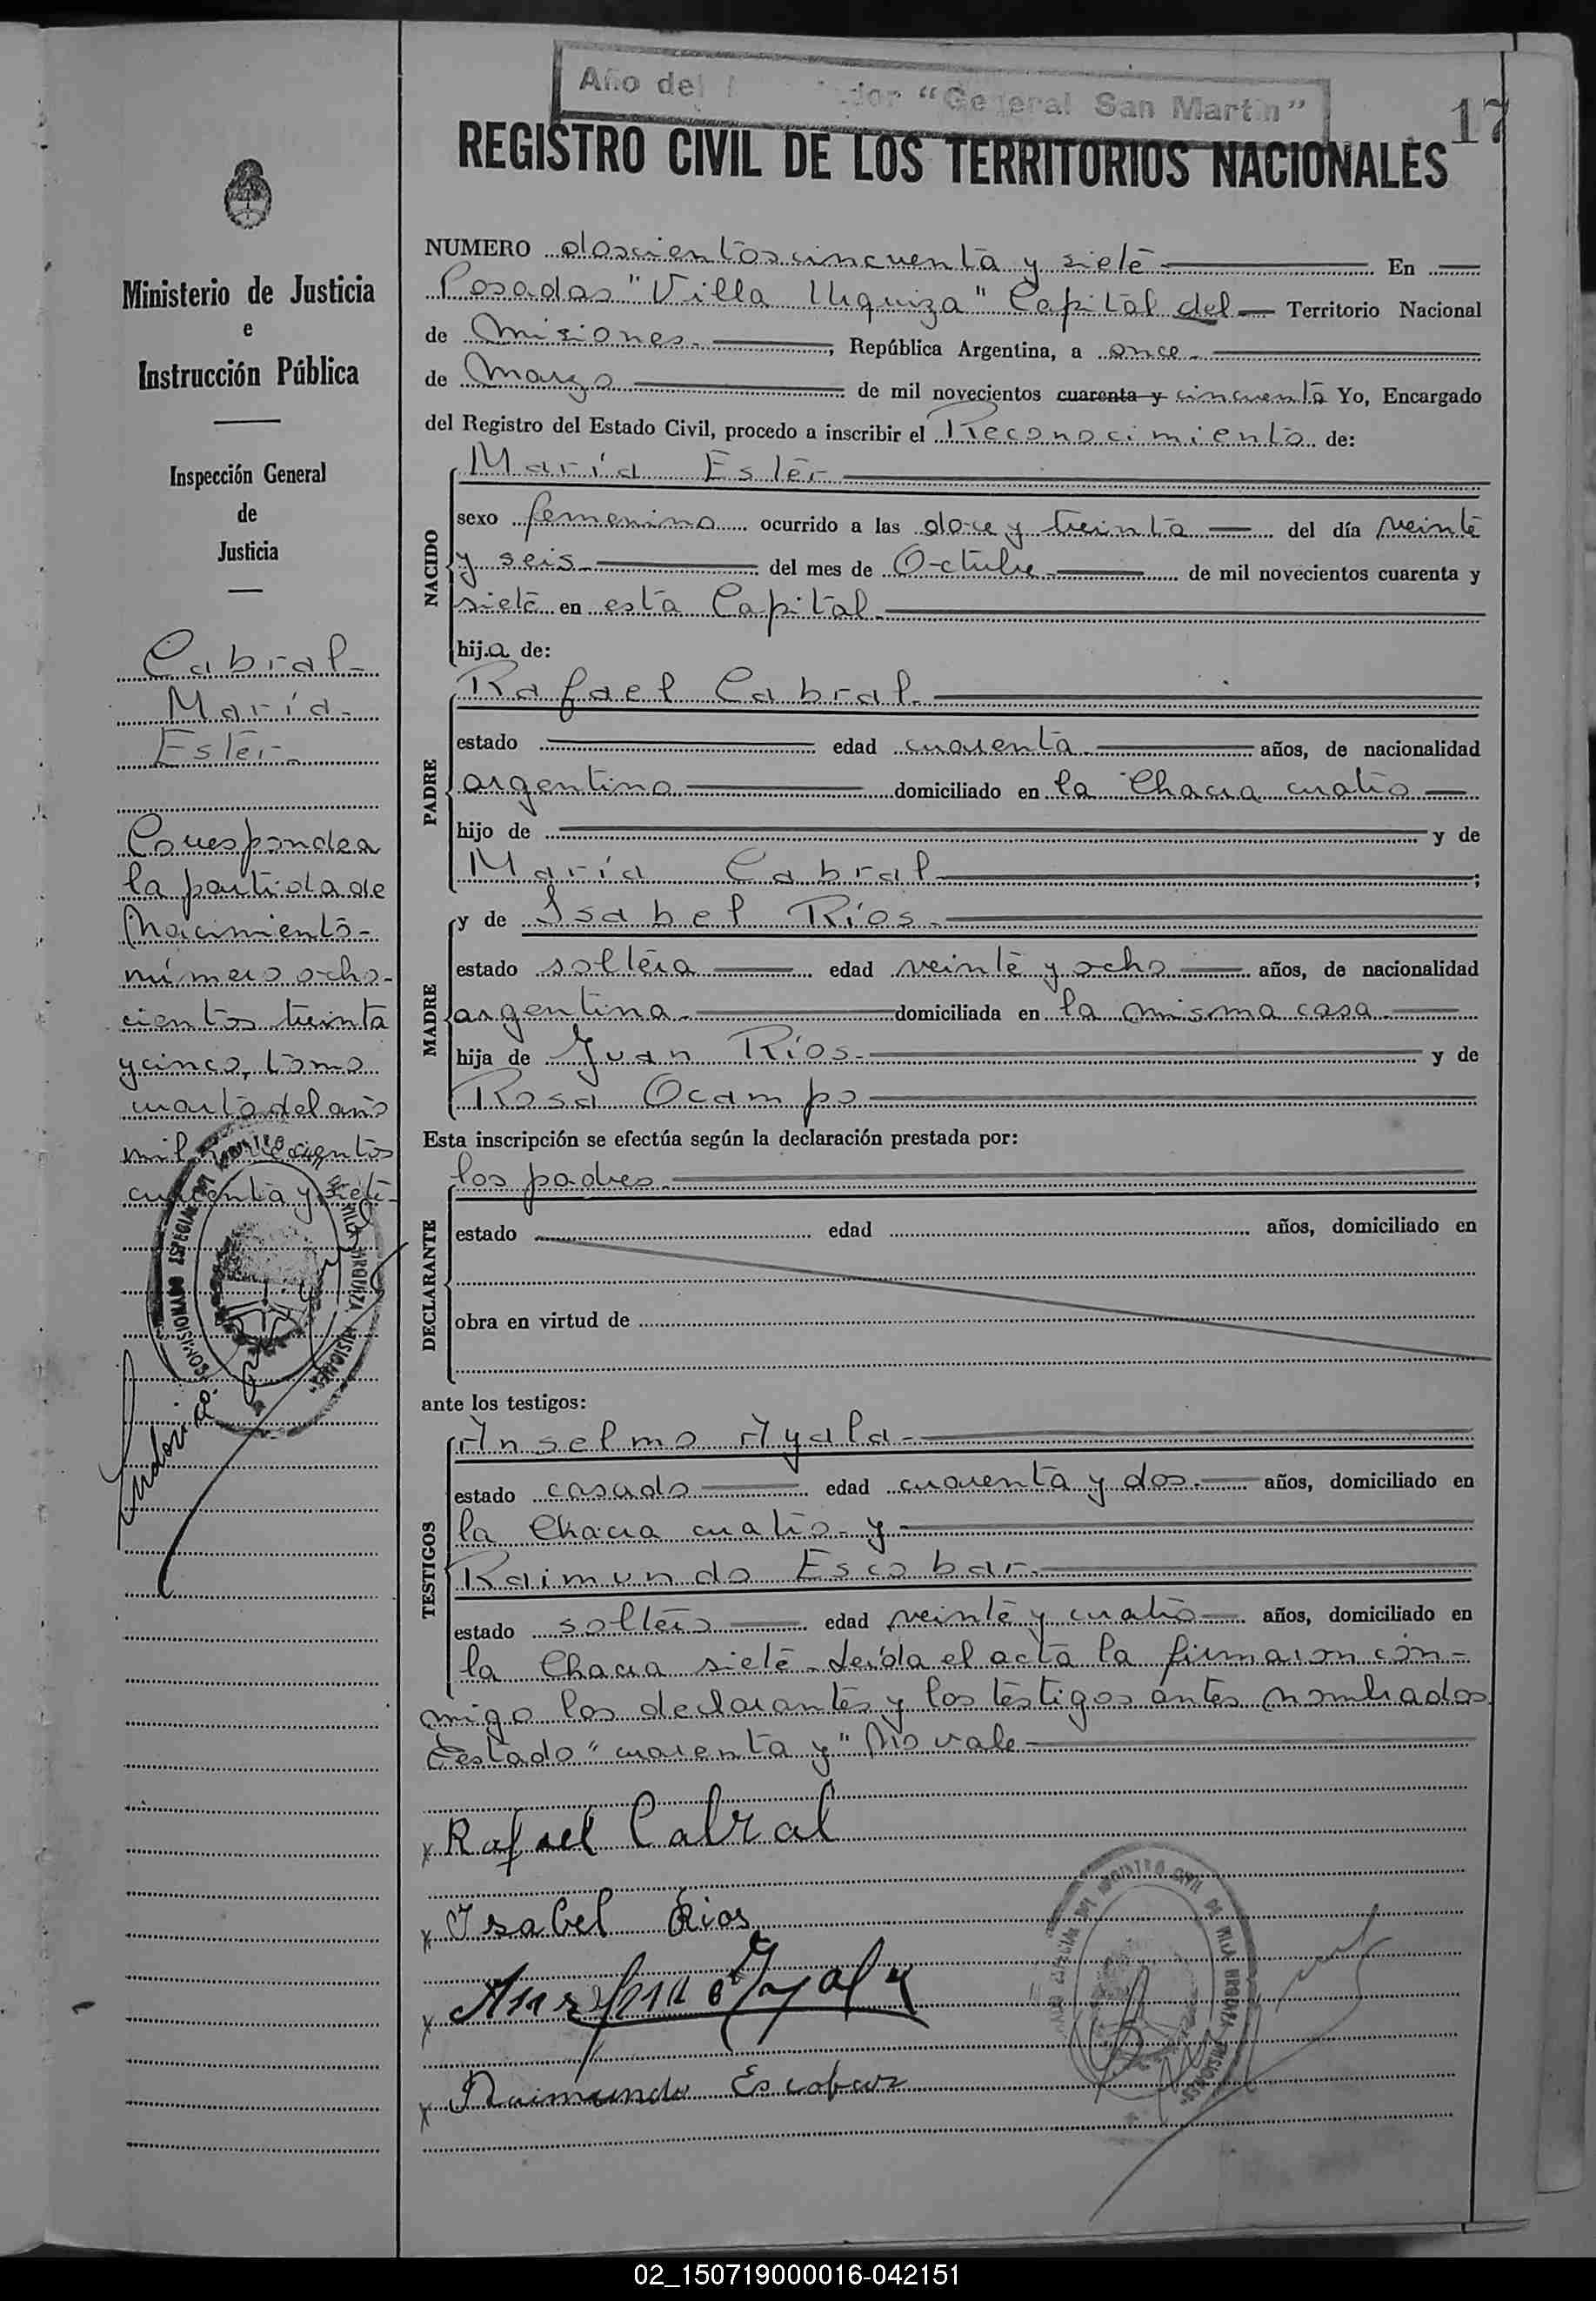 Año del dor "General San Martín"
17
REGISTRO CIVIL DE LOS TERRITORIOS NACIONALES
Ministerio de Justicia
e
Instrucción Pública
Inspección General
de
Justicia
Cabral-
María-
Ester-
Corresponde a
la partida de
Nacimiento-
número ocho-
cientos treinta
y cinco, tomo
cuarto del año
mil novecientos
cuarenta y siete-
NUMERO doscientos cincuenta y siete En
Posadas "Villa Urquiza" Capital del Territorio Nacional
de Misiones, República Argentina, a once
de Marzo de mil novecientos cuarenta y cincuenta Yo, Encargado
del Registro del Estado Civil, procedo a inscribir el Reconocimiento de:
NACIDO
María Ester
sexo femenino ocurrido a las doce y treinta del día veinte
y seis del mes de Octubre de mil novecientos cuarenta y
siete en esta Capital
hija de:
PADRE
Rafael Cabral
estado edad cuarenta años, de nacionalidad
argentino domiciliado en la Chacra cuatro
hijo de y de
María Cabral;
MADRE
y de Isabel Ríos
estado soltera edad veinte y ocho años, de nacionalidad
argentina domiciliada en la misma casa
hija de Juan Ríos y de
Rosa Ocampo
Esta inscripción se efectúa según la declaración prestada por:
DECLARANTE
los padres
estado edad años, domiciliado en
obra en virtud de
ante los testigos:
TESTIGOS
Anselmo Ayala
estado casado edad cuarenta y dos años, domiciliado en
la Chacra cuatro- y
Raimundo Escobar
estado soltero edad veinte y cuatro años, domiciliado en
la Chacra siete- Leída el acta la firmaron con-
migo los declarantes y los testigos antes nombrados
Testado "cuarenta y" No vale
x Rafael Cabral
x Isabel Rios
x Anselmo Ayala
x Raimundo Escobar
COMISIONADO ESPECIAL DEL REGISTRO CIVIL DE VILLA URQUIZA MISIONES
02_150719000016-042151